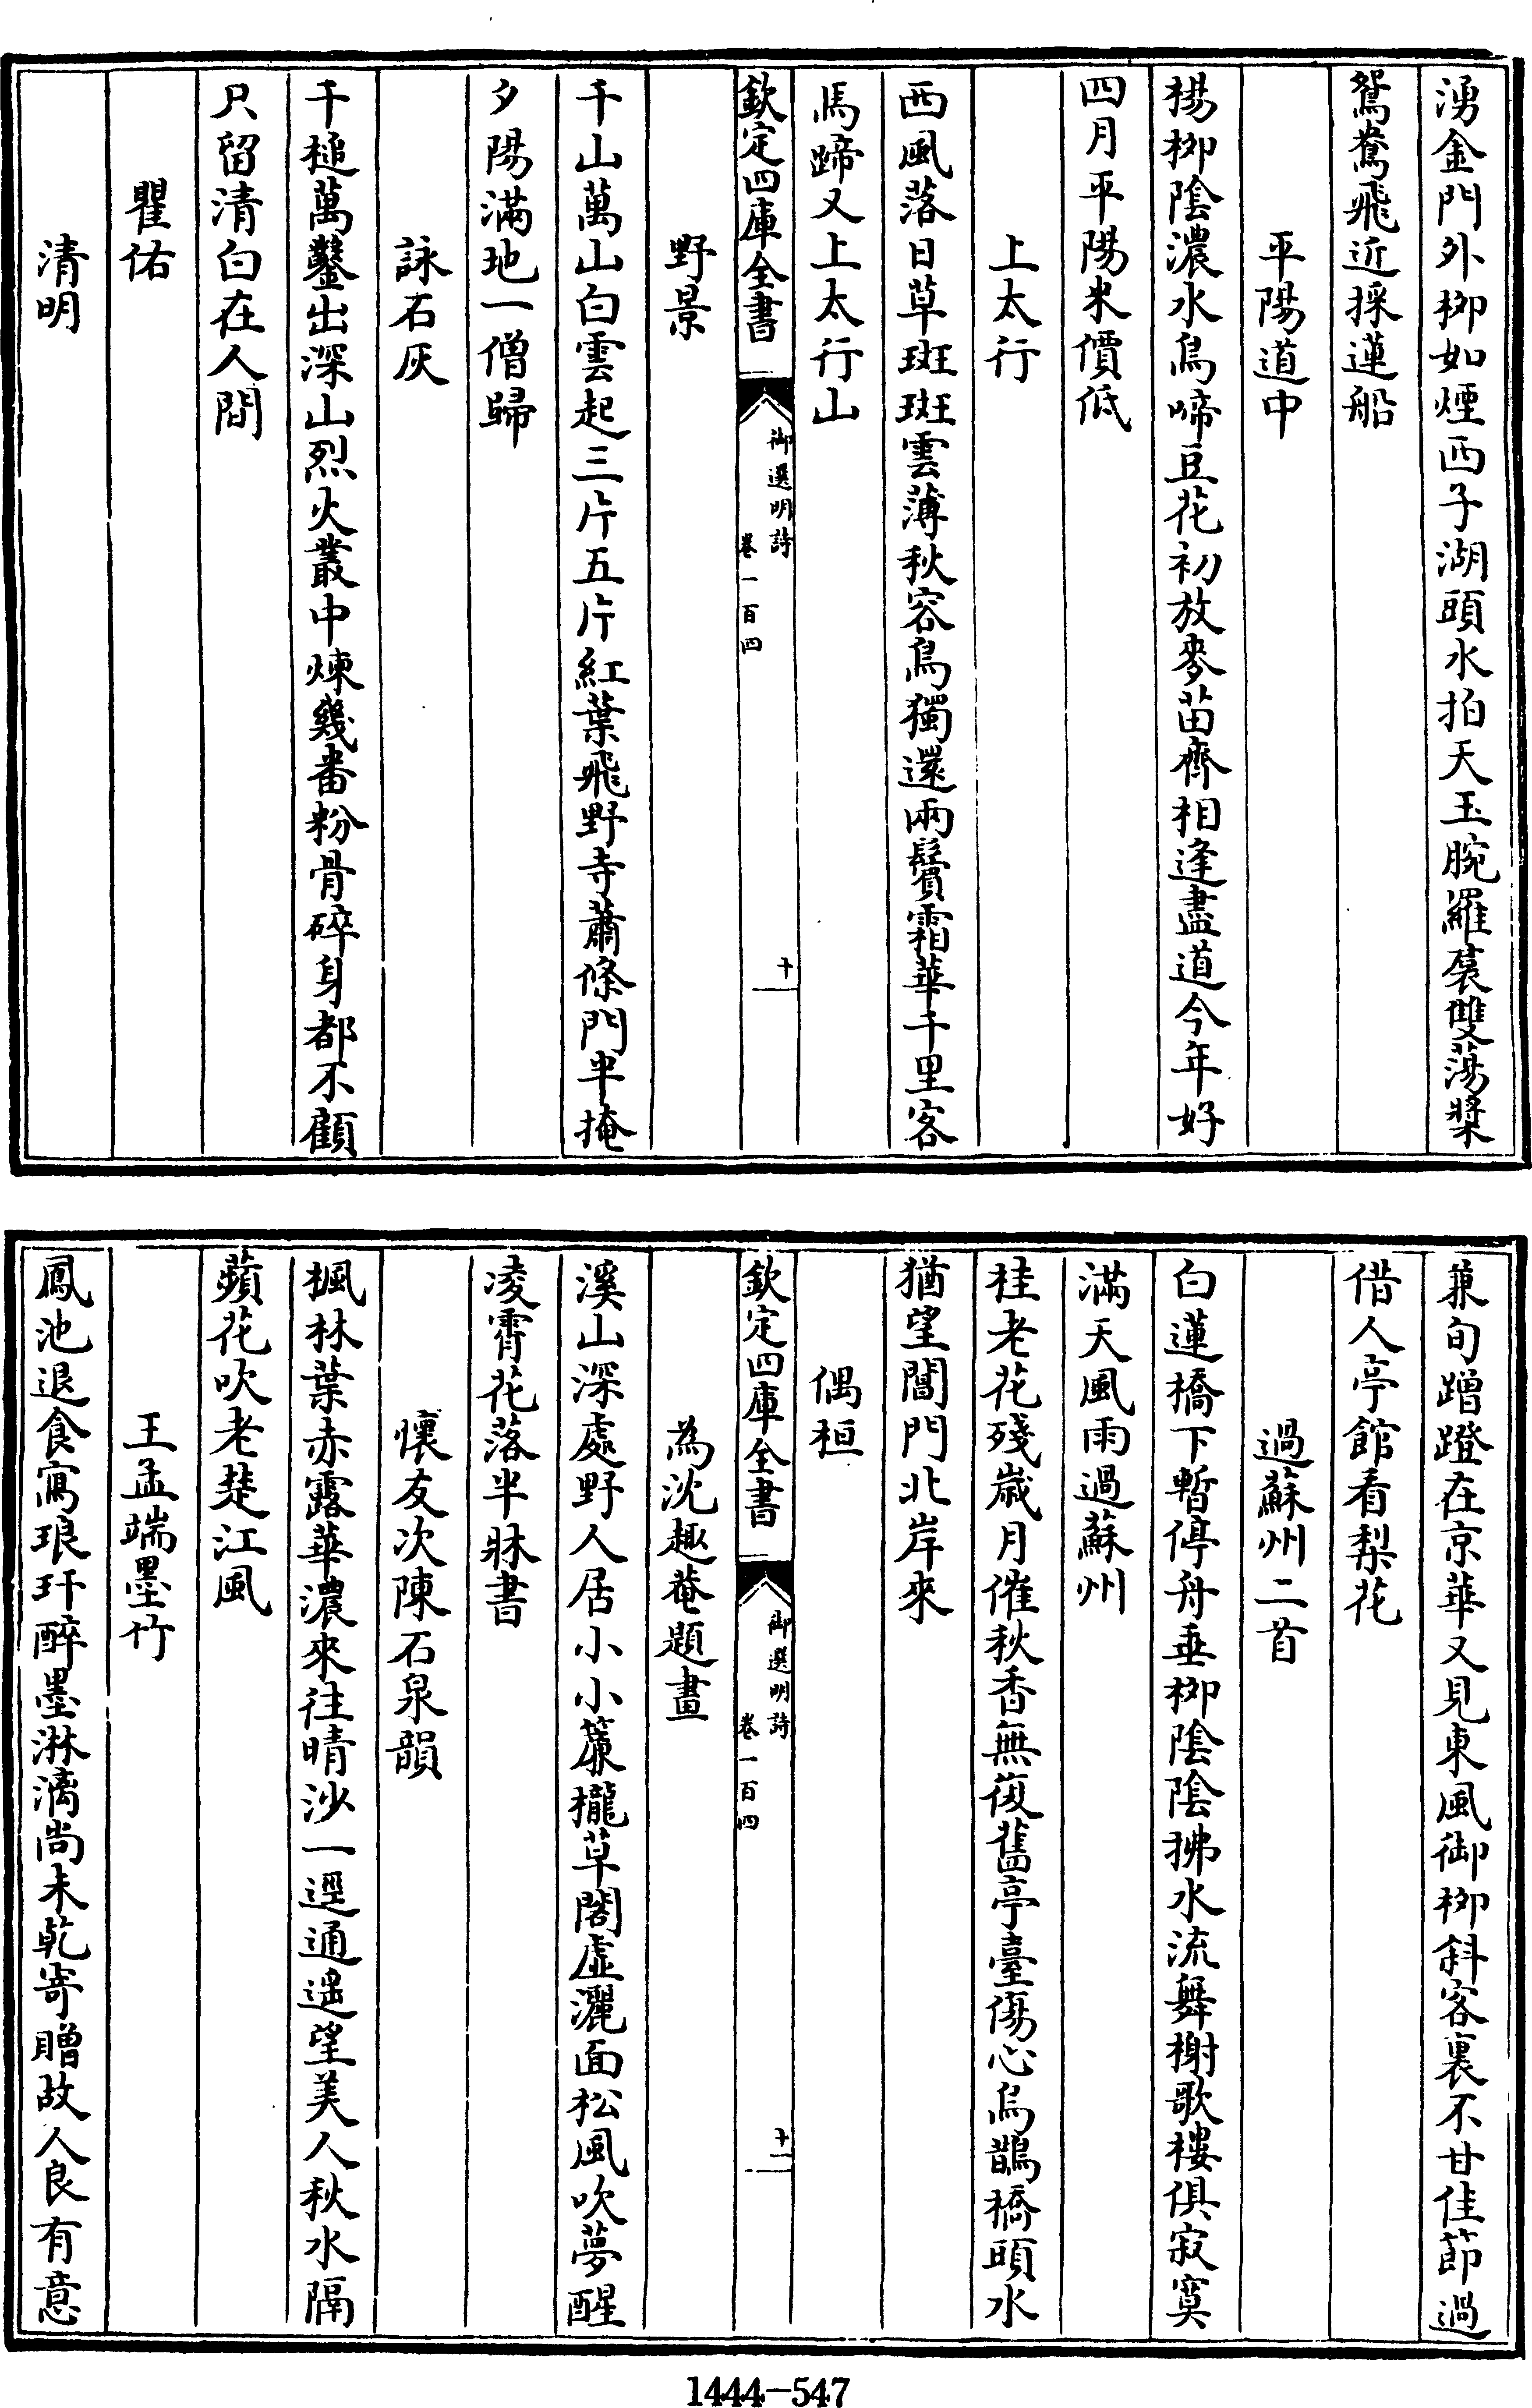 湧金門外柳如煙西子湖頭水拍天玉腕羅裠雙蕩槳
鴛鴦飛近採蓮船
平陽道中
楊柳陰濃水鳥啼豆花初放麥苗齊相逢盡道今年好
四月平陽米價低
上太行
西風落日草斑斑雲薄秋容鳥獨還兩鬢霜華千里客
馬蹄又上太行山
欽定四庫全書
御選明詩
卷一百四
十
野景
千山萬山白雲起三片五片紅葉飛野寺蕭條門半掩
夕陽滿地一僧歸
詠石灰
千槌萬鑿出深山烈火叢中煉幾番粉骨碎身都不顧
只留清白在人間
瞿佑
清明
兼旬蹭蹬在京華又見東風御柳斜客裏不甘佳節過
借人亭館看梨花
過蘇州二首
白蓮橋下暫停舟垂柳陰陰拂水流舞榭歌樓俱寂寞
滿天風雨過蘇州
桂老花殘歲月催秋香無復舊亭臺傷心烏鵲橋頭水
猶望閶門北岸來
偶桓
欽定四庫全書
御選明詩
卷一百四
十一
為沈趣菴題畫
溪山深處野人居小小簾櫳草閣虛灑面松風吹夢醒
凌霄花落半牀書
懷友次陳石泉韻
楓林葉赤露華濃來往晴沙一逕通遥望美人秋水隔
蘋花吹老楚江風
王孟端墨竹
鳳池退食寫琅玕醉墨淋漓尚未乾寄贈故人良有意
1444-547